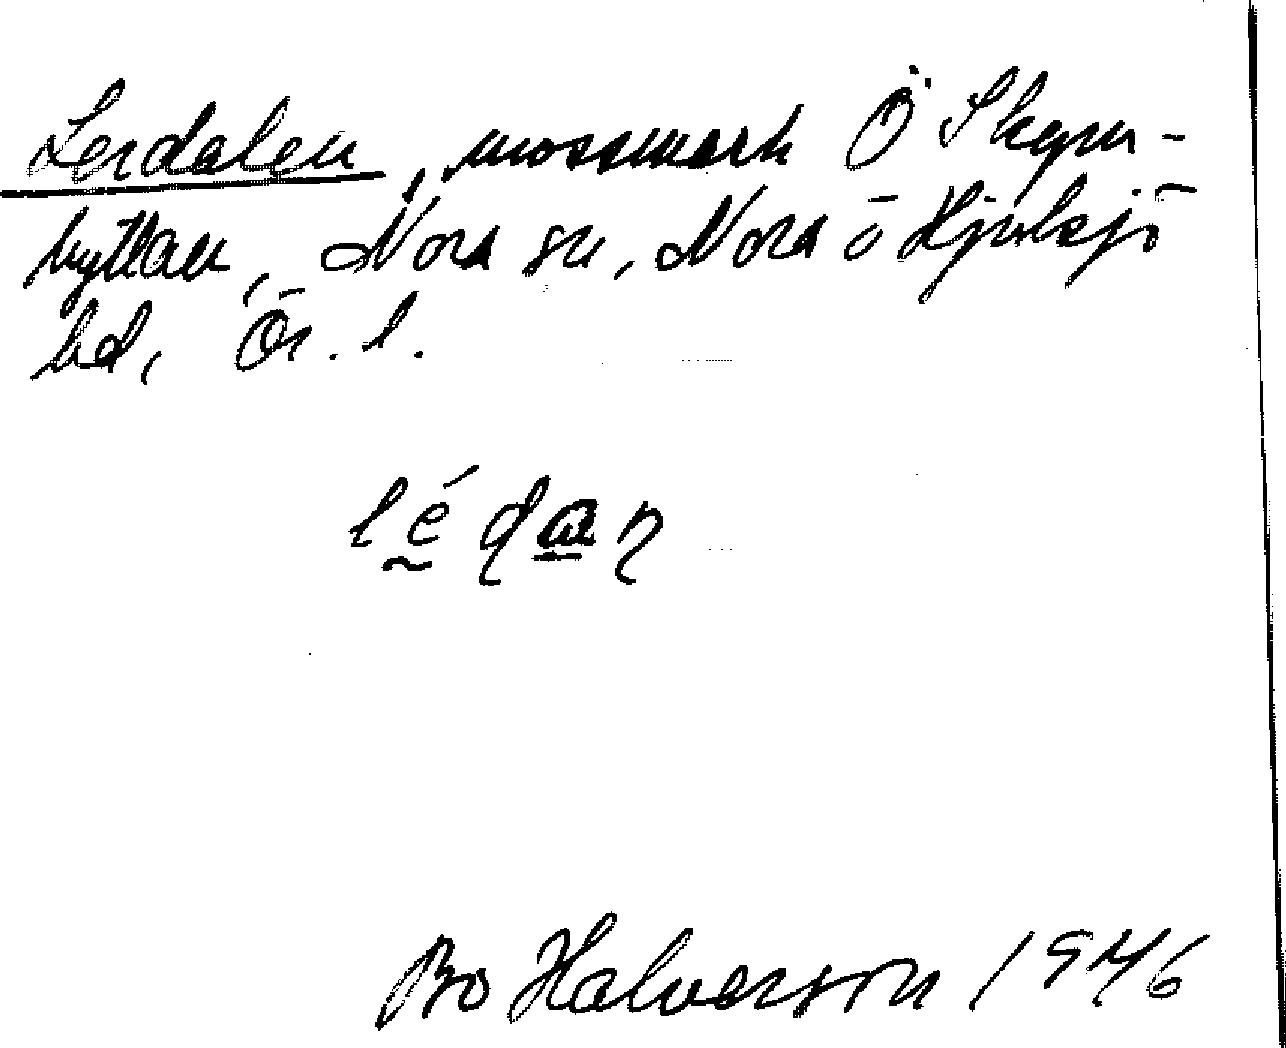 Lerdalen, mossmark Ö Skym-
hyttan, Nora sn, Nora o Hjulsjö
bd, Ör. l.
lédan
Bo Halverson 1946